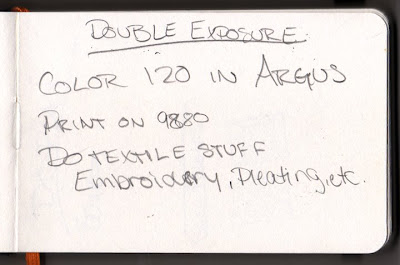 DOUBLE EXPOSURE
COLOR 120 IN ARGUS
PRINT ON 9880
DO TEXTILE STUFF
Embroidery, Pleating, etc.